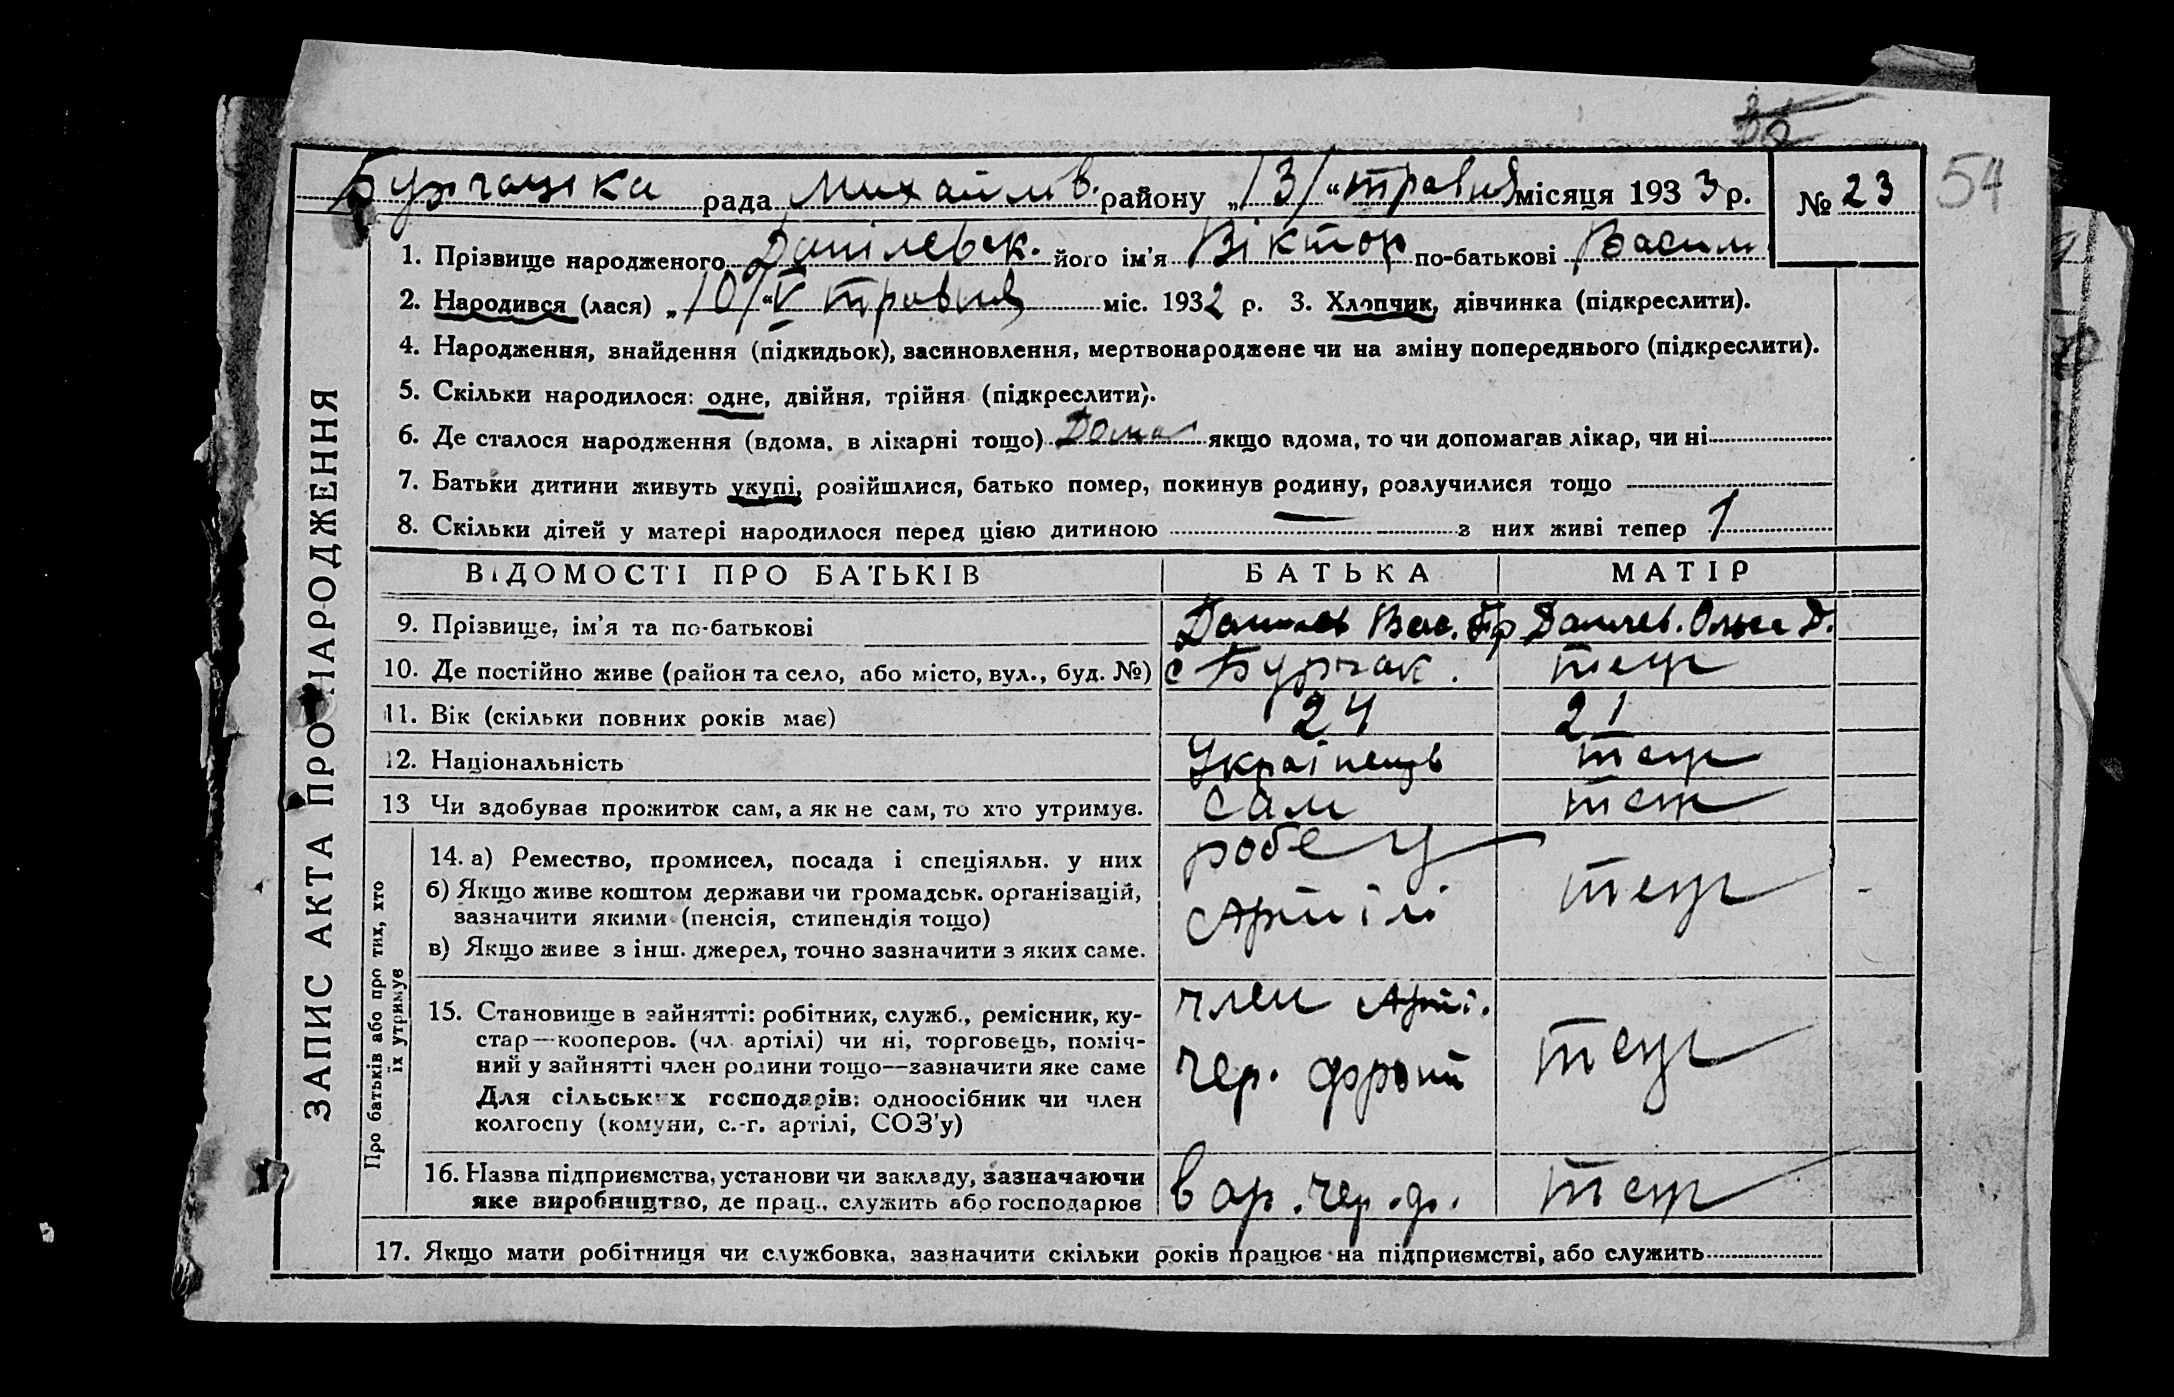 54
Бурчацька рада Михайлів. району „13“ травня місяця 1933 р. № 23
1. Прізвище народженого Данілевськ. його ім'я Віктор по-батькові Васил
2. Народився (лася) „10“ V травня міс. 1932 р. 3. Хлопчик, дівчинка (підкреслити).
4. Народження, знайдення (підкидьок), засиновлення, мертвонароджене чи на зміну попереднього (підкреслити).
5. Скільки народилося: одне, двійня, трійня (підкреслити).
6. Де сталося народження (вдома, в лікарні тощо) Дома якщо вдома, то чи допомагав лікар, чи ні
7. Батьки дитини живуть укупі, розійшлися, батько помер, покинув родину, розлучилися тощо
8. Скільки дітей у матері народилося перед цією дитиною — з них живі тепер 1
ЗАПИС АКТА ПРО НАРОДЖЕННЯ
ВІДОМОСТІ ПРО БАТЬКІВ БАТЬКА МАТІР
9. Прізвище, ім'я та по-батькові Данилев Вас. Гр Данилев. Ольга Д.
10. Де постійно живе (район та село, або місто, вул., буд. №) с Бурчак. теж
11. Вік (скільки повних років має) 24 21
12. Національність Українець теж
13 Чи здобував прожиток сам, а як не сам, то хто утримує. сам теж
Про батьків або про тих, хто
їх утримує
14. а) Ремество, промисел, посада і спеціяльн. у них робец
б) Якщо живе коштом держави чи громадськ. організацій,
зазначити якими (пенсія, стипендія тощо) Артілі теж
в) Якщо живе з інш. джерел, точно зазначити з яких саме.
15. Становище в зайнятті: робітник, служб., ремісник, ку-
стар—кооперов. (чл. артілі) чи ні, торговець, поміч-
ний у зайнятті член родини тощо—зазначити яке саме
Для сільських господарів: одноосібник чи член
колгоспу (комуни, с.-г. артілі, СОЗ'у)
член Арті.
чер. фронт теж
16. Назва підприємства, установи чи закладу, зазначаючи
яке виробництво, де прац., служить або господарює вар. чер. ф. теж
17. Якщо мати робітниця чи службовка, зазначити скільки років працює на підприємстві, або служить